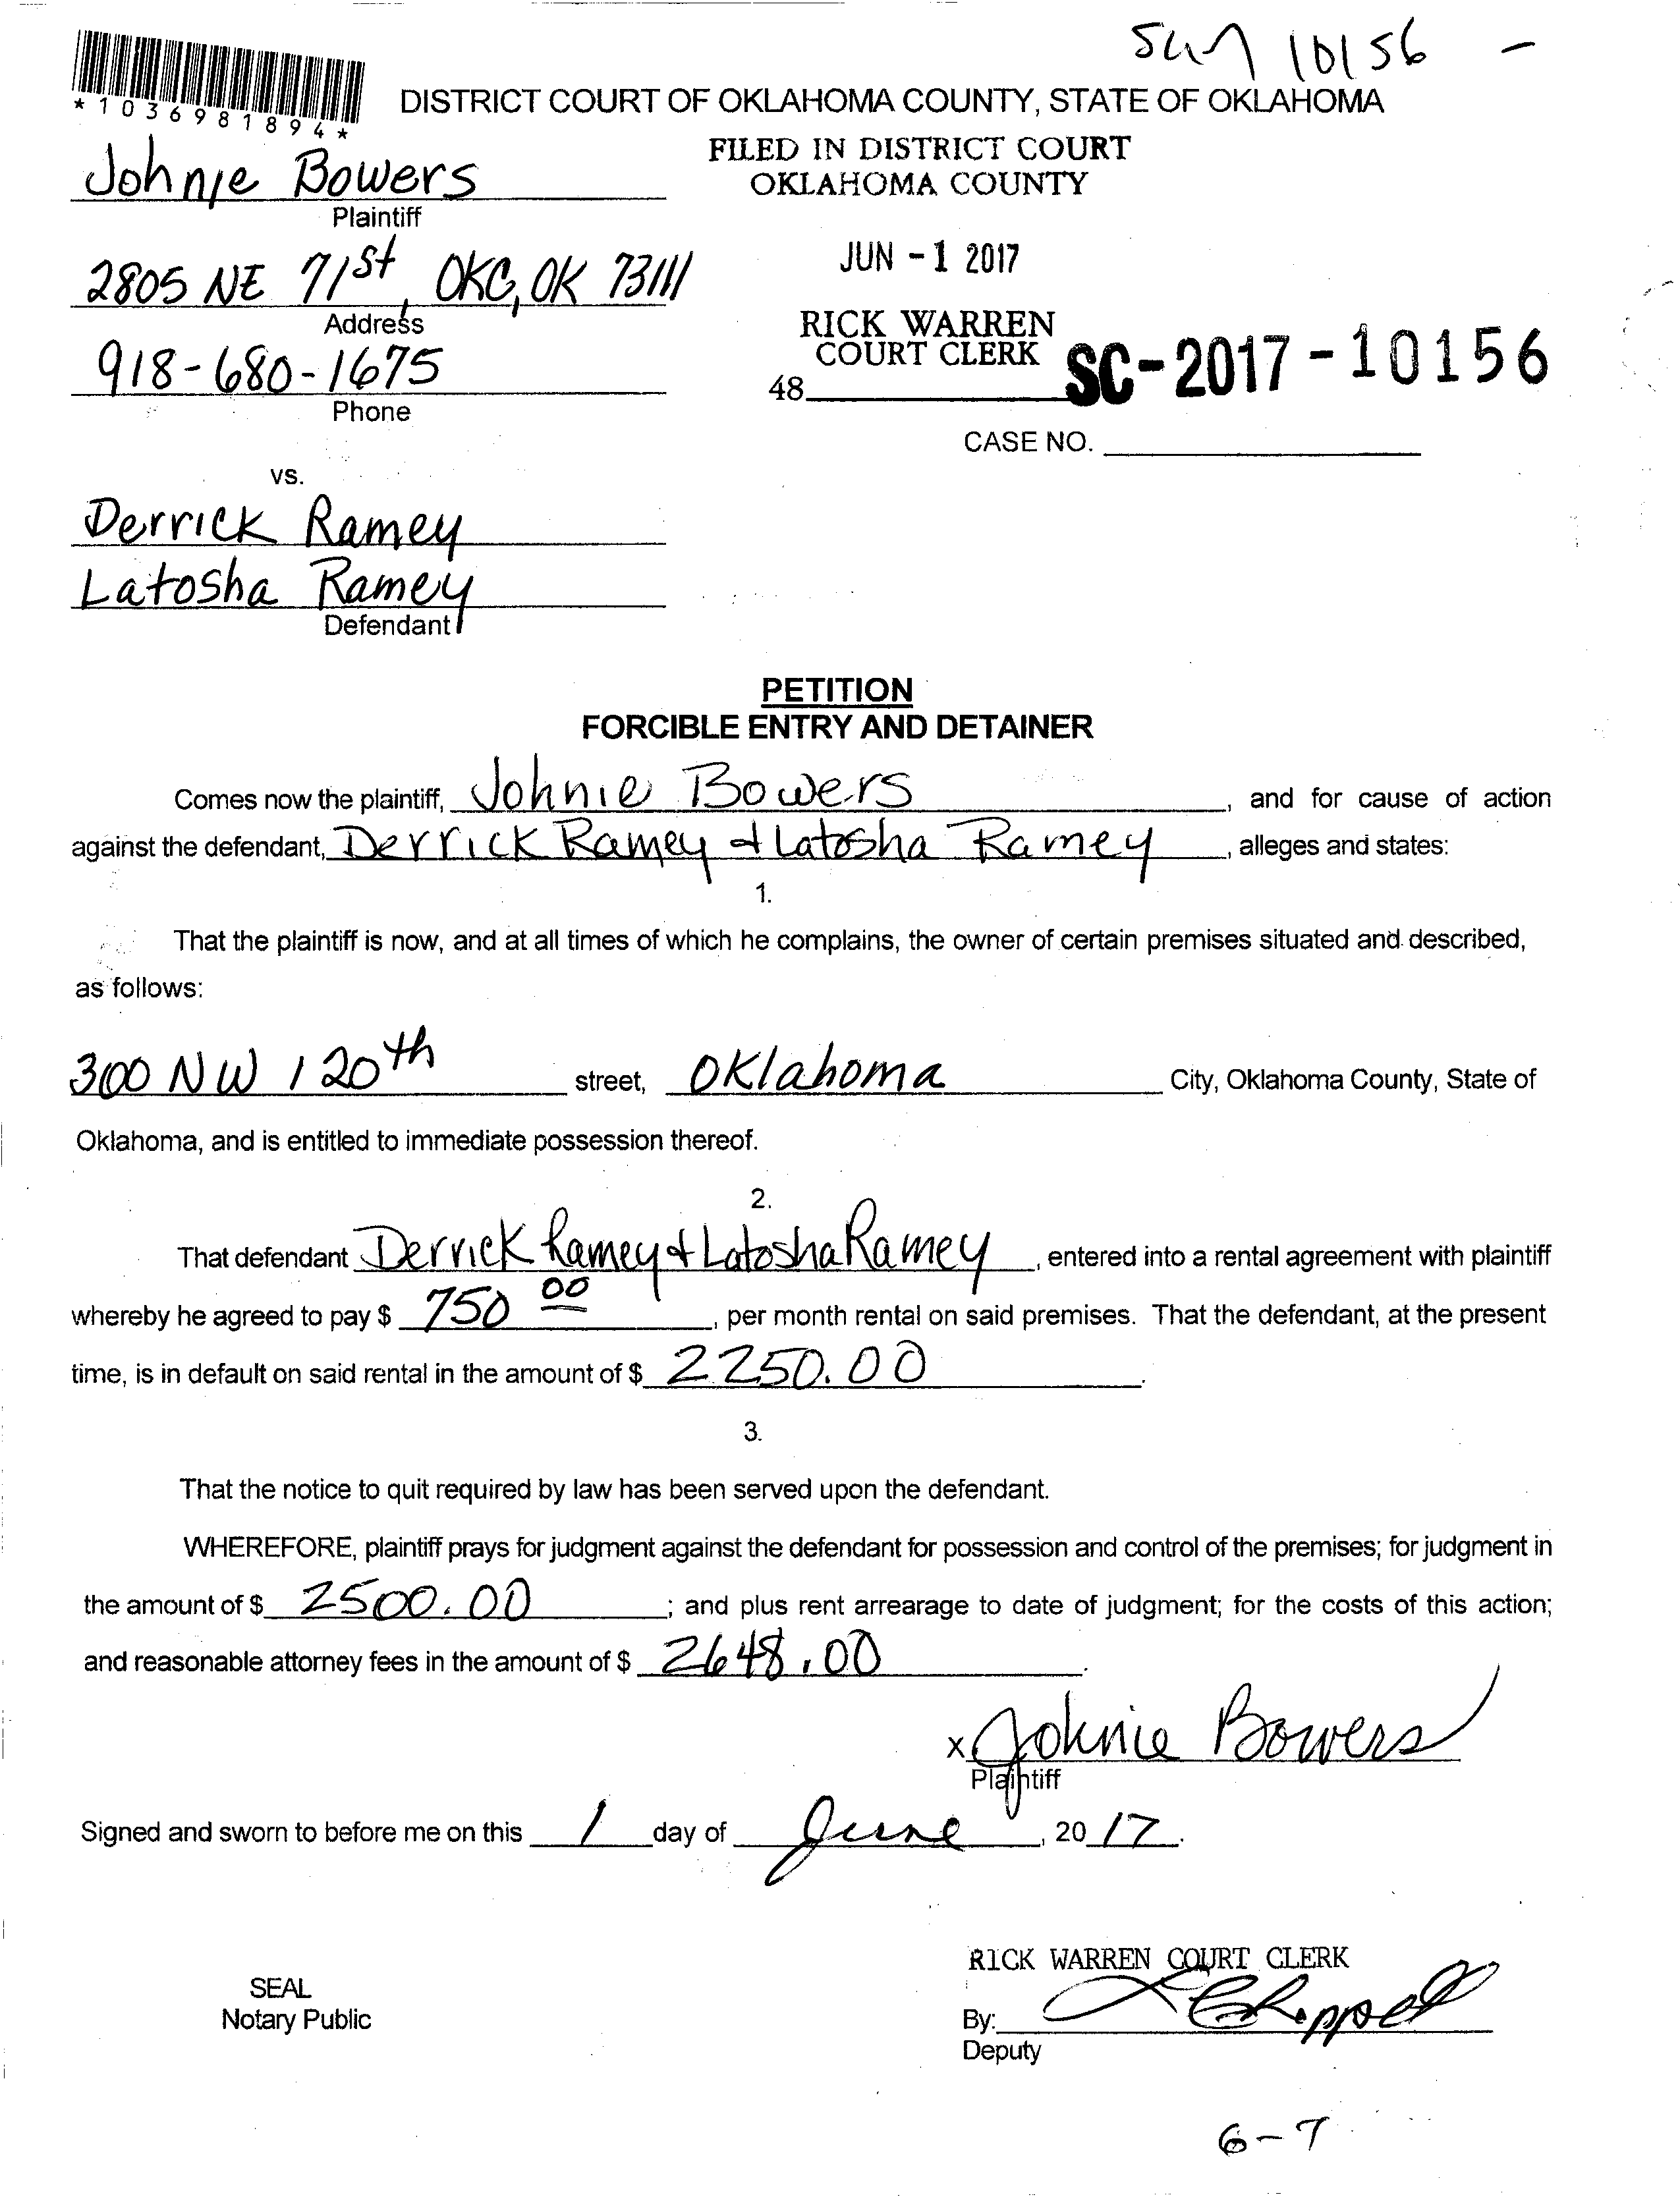 10156 -
*1036981894*
DISTRICT COURT OF OKLAHOMA COUNTY, STATE OF OKLAHOMA
FILED IN DISTRICT COURT
OKLAHOMA COUNTY
Johnie Bowers
Plaintiff
JUN - 1 2017
2805 NE 71st, OKC, OK 73111
Address
RICK WARREN
COURT CLERK
918-680-1675
Phone
48 SC-2017-10156
CASE NO.
vs.
Derrick Ramey
Latosha Ramey
Defendant
PETITION
FORCIBLE ENTRY AND DETAINER
Comes now the plaintiff, Johnie Bowers, and for cause of action
against the defendant, Derrick Ramey & Latosha Ramey, alleges and states:
1.
That the plaintiff is now, and at all times of which he complains, the owner of certain premises situated and described,
as follows:
300 NW 120th street, Oklahoma City, Oklahoma County, State of
Oklahoma, and is entitled to immediate possession thereof.
2.
That defendant Derrick Ramey & Latosha Ramey, entered into a rental agreement with plaintiff
whereby he agreed to pay $ 750 00, per month rental on said premises. That the defendant, at the present
time, is in default on said rental in the amount of $ 2250.00.
3.
That the notice to quit required by law has been served upon the defendant.
WHEREFORE, plaintiff prays for judgment against the defendant for possession and control of the premises; for judgment in
the amount of $ 2500.00; and plus rent arrearage to date of judgment; for the costs of this action;
and reasonable attorney fees in the amount of $ 2648.00.
x Johnie Bowers
Plaintiff
Signed and sworn to before me on this 1 day of June, 20 17.
RICK WARREN COURT CLERK
SEAL
Notary Public
By:
Deputy
6-7